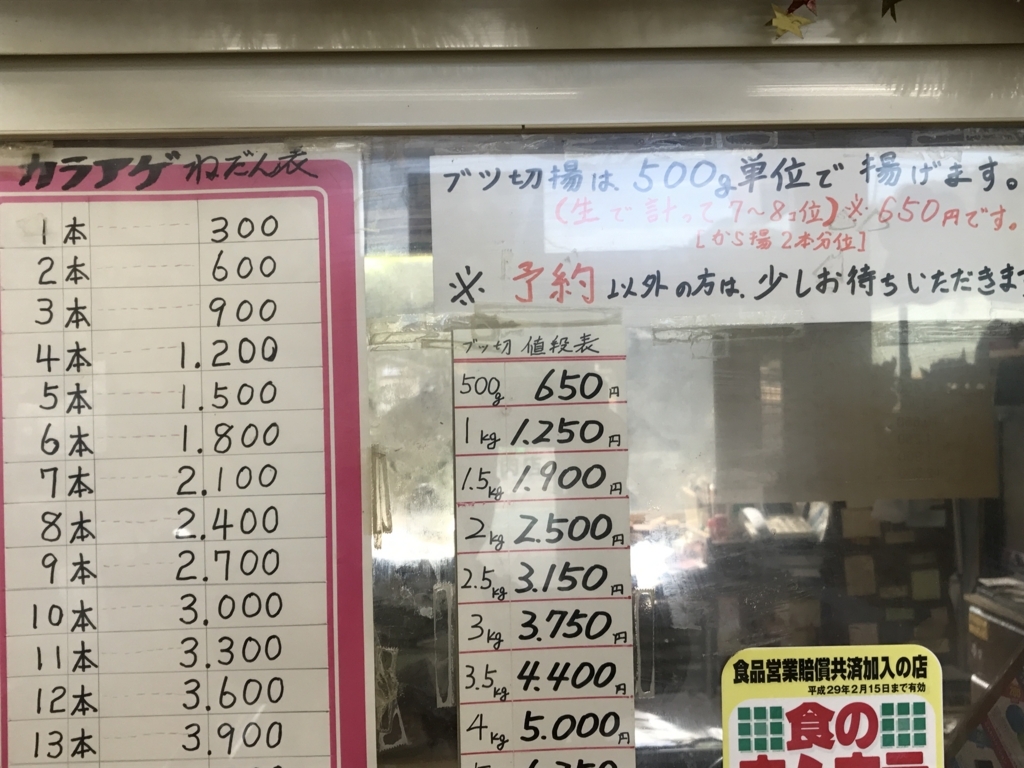 カラアゲ ねだん表
1本 300
2本 600
3本 900
4本 1.200
5本 1.500
6本 1.800
7本 2.100
8本 2.400
9本 2.700
10本 3.000
11本 3.300
12本 3.600
13本 3.900
ブツ切揚は 500g単位で 揚げます。
(生で計って7〜8コ位)※ 650円です。
[から揚2本分位]
※ 予約 以外の方は、少しお待ちいただきます
ブツ切 値段表
500g 650円
1kg 1.250円
1.5kg 1.900円
2kg 2.500円
2.5kg 3.150円
3kg 3.750円
3.5kg 4.400円
4kg 5.000円
食品営業賠償共済加入の店
平成29年2月15日まで有効
食の